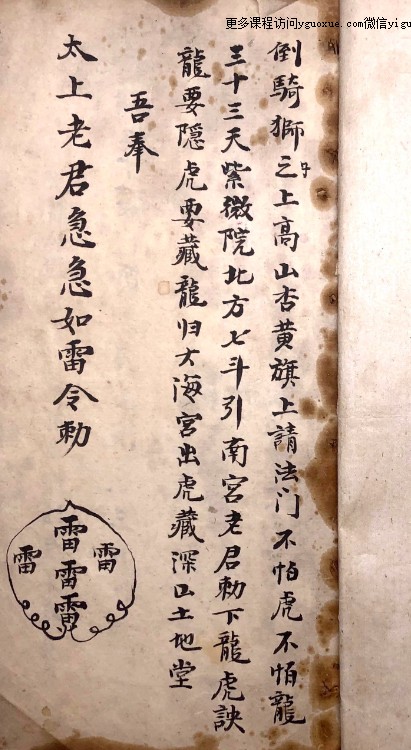 更多课程访问yiguoxue.com微信yigu
倒騎獅子之上高山杏黃旗上請法门不怕虎不怕龍
三十三天紫微院北方七斗引南宮老君勅下龍虎訣
龍要隱虎要藏龍归大海宮出虎藏深山土地堂
吾奉
太上老君急急如雷令勅
雷
雷 雷 雷
雷